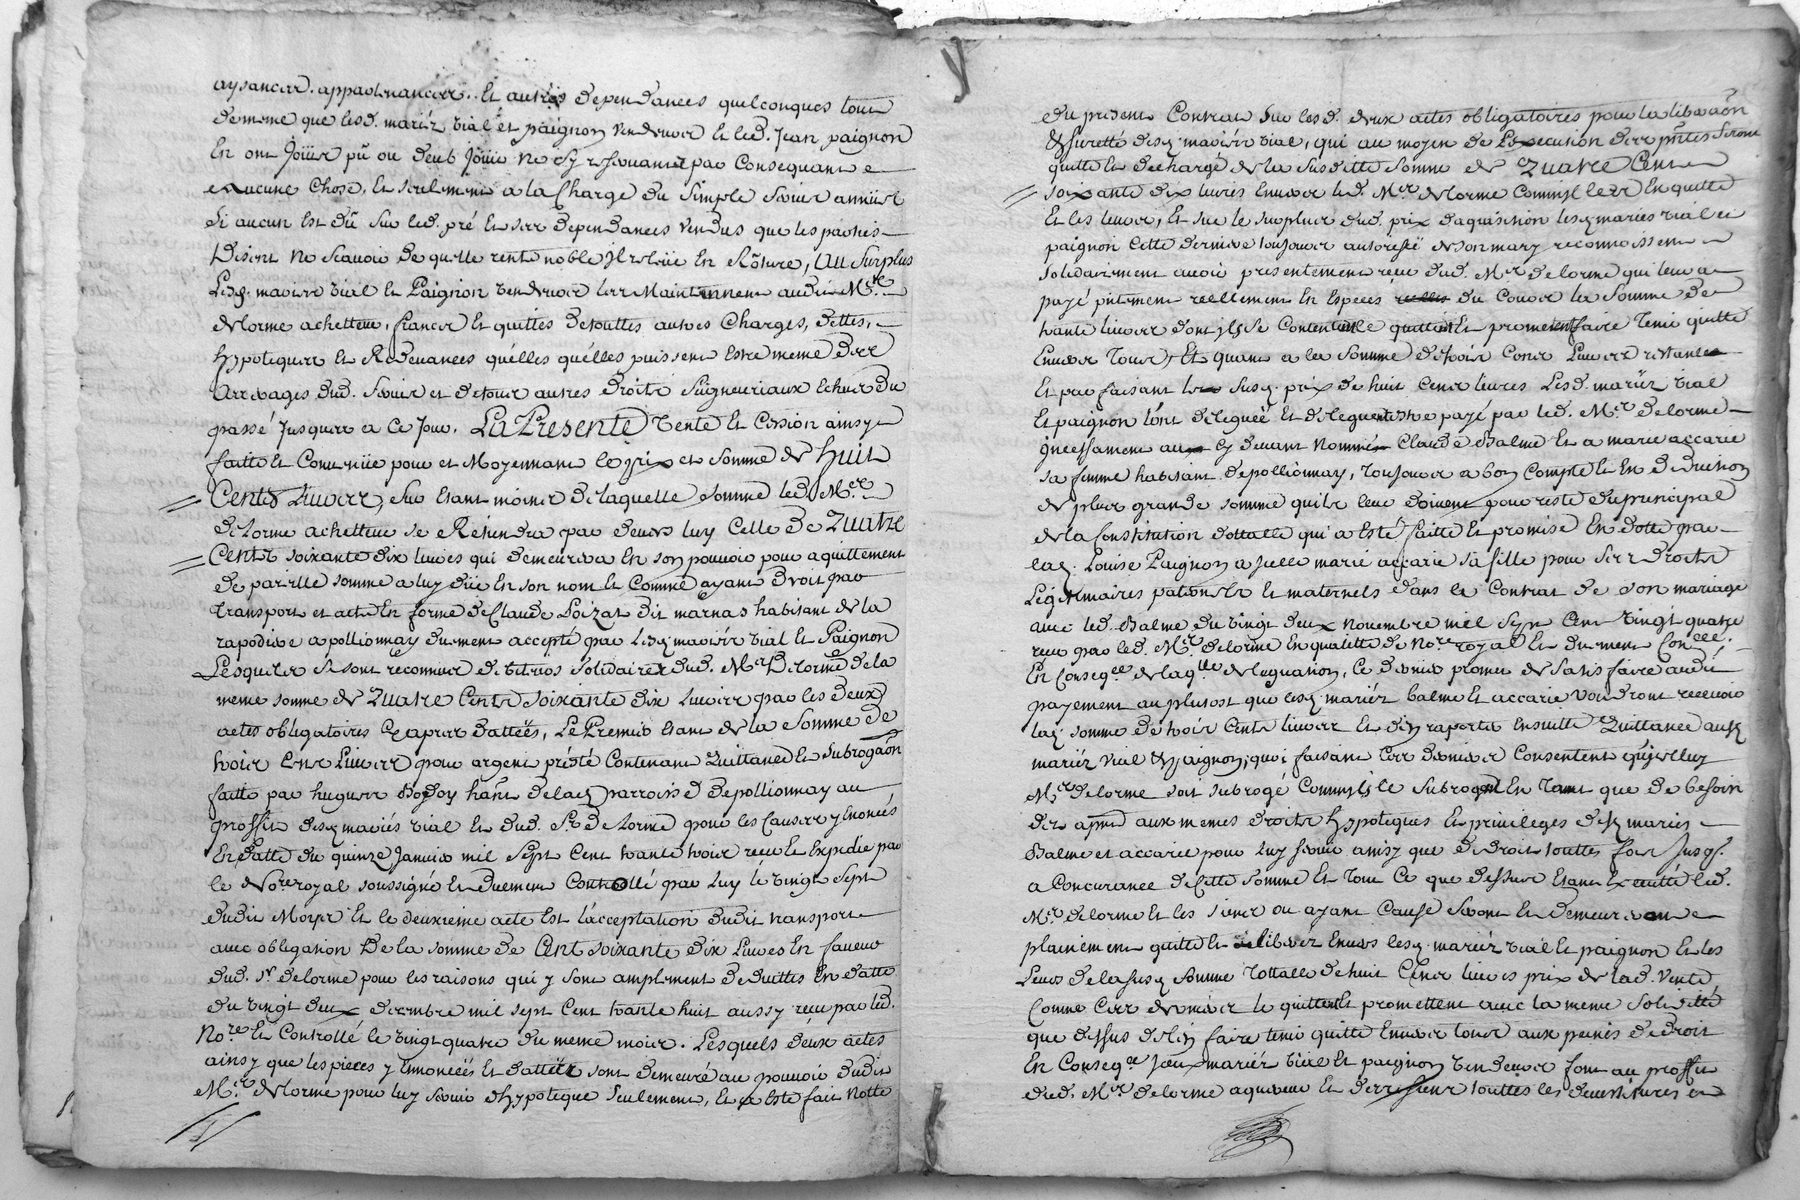 aysances. appartenances. Et autres dependances quelconques tout
demême que lesd. mariéz vial et paignon vendeurs Et led. Jean paignon
En ont joüir pû ou deub joüir ne sy reservant par Consequent
aucune Chose, Et seulement a la Charge du simple servis annüel
Si aucun est dû sur led. pré et ses dependances vendus que les parties
Disent ne scavoir de quelle rente noble Il releve En Rôture, Au surplus
Lesd. mariés vial Et Paignon vendeurs les Maintiennent audit Mr.
delorme achetteur, francs Et quittes detouttes autres Charges, dettes,
hypoteques Et Redevances quélles quélles puissent Estre meme des
Arrerages dud. servis et detous autres droits seigneuriaux Echus du
passé jusques a Ce jour. La Presente vente Et Cession ainsy
faitte Et Convenüe pour et Moyennant le prix et somme de huit
Cents Livres, sur Etant moins de laquelle somme led. Mr.
delorme achetteur se Retiendra par devers luy Celle de Quatre
Cents soixante dix livres qui demeurera En son pouvoir pour aquittement
de pareille somme a luy düe En son nom Et Comme ayant droit par
transport et acte En forme de Claude Loizat dit marnas habitant de la
rapodiere a pollionnay dument accepté par lesd. mariés vial Et Paignon
Lesquels se sont reconnus debiteurs solidaires dud. Mr. Delorme de la
meme somme de Quatre Cents soixante dix Livres par les deux
actes obligatoires Cy apres dattées, Le Premier Etant de la somme de
trois Cent Livres pour argent prêté Contenant Quittance Et subrogaon
faitte par hugues hant delad. Parroisse de pollionnay au
proffit desd. mariés vial Et dud. Sr. Delorme pour les Causes y Enoncés
En datte du quinze janvier mil sept Cent trante trois receu Et Expedie par
le No.re royal soussigné Et duement Controllé par luy le vingt sept
dudit Moys Et le deuxieme acte Est l'acceptation dudit transport
avec obligation De la somme de Cent soixante dix Livres En faveur
dud. Sr. delorme pour les raisons qui y sont amplement deduittes En datte
du vingt deux decembre mil sept Cent trante huit aussy receu par led.
No.re Et Controllé le vingt quatre du meme mois. Lesquels deux actes
ainsy que les pieces y Ennoncées Et dattées sont demeuré au pouvoir dudit
Mr. delorme pour luy servir d'hypoteque seulement, Et a Esté fait notte
du present Contrat sur lesd. deux actes obligatoires pour la liberaon
Et suretté desd. mariés vial, qui au moyen de l'Execution des pntes seront
quitte Et decharge de la susditte somme de Quatre Cent
soixante dix livres Envers led. Mr. delorme Comme Il les En quitte
Et les leurs, Et sur le surplus dud. prix daquisition lesd. mariés vial et
paignon Cette derniere toujours autorisée de son mary reconnoissent
solidairement avoir presentement receu dud. Mr. delorme qui leur a
payé pntement reellement En especes du Cours la somme de
trante livres dont ils se Contentent le quittent Et promettent faire tenir quitte
Envers Tous, Et quant a la somme de trois Cens Livres restante
Et par faisant les susd. prix de huit Cens livres Lesd. mariéz vial
Et paignon l'ont deleguée Et deleguent Estre payé par led. Mr. delorme
incessament aux Cy devant nommés Claude Balme Et a marie accarie
sa femme habitant de pollionnay, toujours a bon Compte Et En deduction
de plus grande somme quils leur doivent pour reste du principal
de la Constitution dottalle qui a Esté faitte Et promise En dotte par
lad. Louise Paignon a Jelle marie accarie sa fille pour ses droits
Legitimaires paternels Et maternels dans le Contrat de son mariage
avec led. Balme du vingt deux novembre mil sept Cent vingt quatre
receu par led. Mr. delorme En qualitté de No.re royal Et duement Con.llé.
En Conseq.ce de laq.lle delegation, Ce dernier promet de satisfaire audit
payement au plutost que lesd. mariés balme Et accarie voudront recevoir
lad. somme de trois Cents livres Et d'En raporter Ensuitte Quittance ausd.
mariéz vial Et paignon; qui faisant Ces derniers Consentent qu'jcelluy
Mr. delorme soit subrogé Comme Ils le subrogent En tant que de besoin
des aprnt aux memes droits hypoteques Et privileges desd. mariés
Balme et accarie pour luy servir ainsy que de droit touttes fois jusq.
a Concurance de Cette somme Et tout Ce que dessus Etant Executté led.
Mr. delorme Et les siens ou ayant Cause seront Et demeureront
plainement quitte Et deliberés Envers lesd. mariéz vial Et paignon Et les
Leurs de la susd. somme tottalle de huit Cens livres prix de lad. vente
Comme Ces derniers le quittent Et promettent avec la meme solidité
que dessus de l'En faire tenir quitte Envers tous aux peines de droit
En Conseq.ce jceux mariéz vial Et paignon vendeurs font au proffit
dud. Mr. delorme aquereur Et des siens touttes les devestitures et